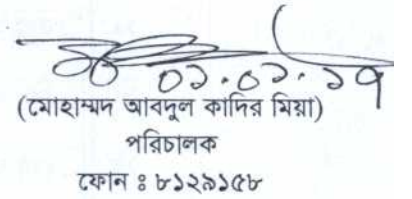 ০১.০১.১৭
(মোহাম্মদ আবদুল কাদির মিয়া)
পরিচালক
ফোন ঃ ৮১২৯১৫৮